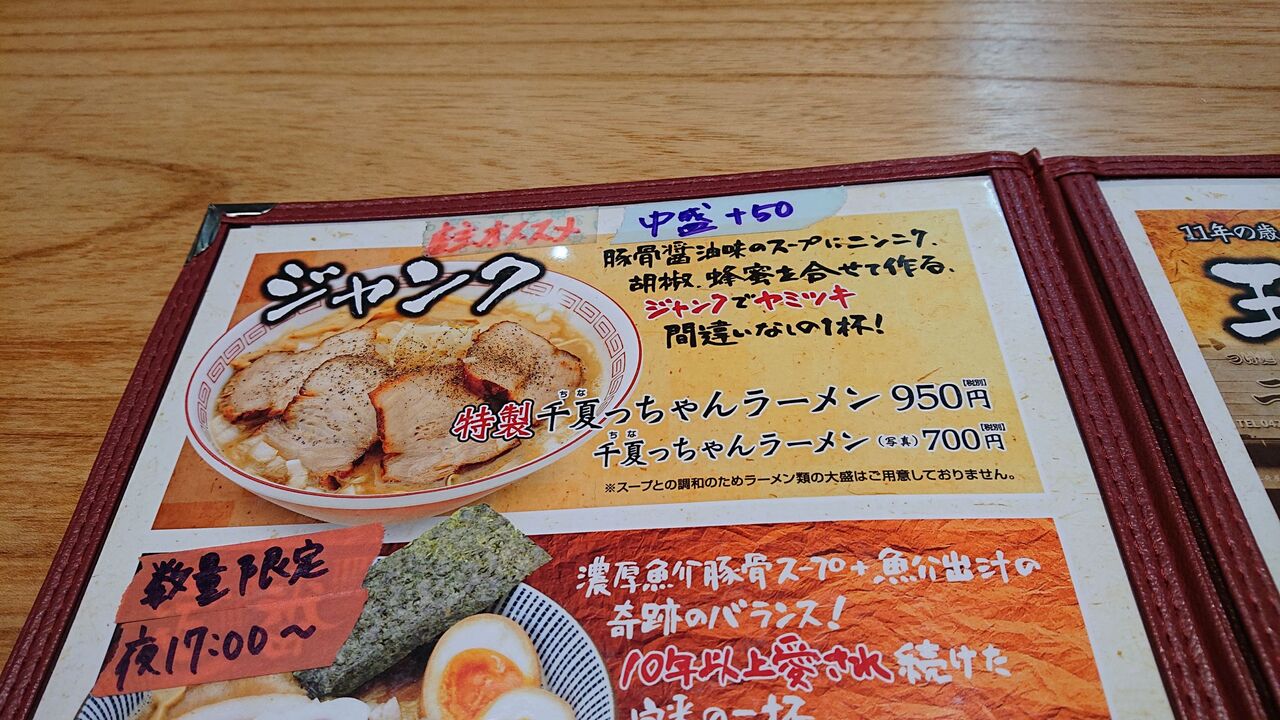 オススメ
中盛 +50
ジャンク
豚骨醤油味のスープにニンニク、
胡椒、蜂蜜を合せて作る、
ジャンクでヤミツキ
間違いなしの1杯!
ちな
特製千夏っちゃんラーメン 950円 [税別]
ちな
千夏っちゃんラーメン (写真) 700円 [税別]
※スープとの調和のためラーメン類の大盛はご用意しておりません。
数量限定
夜17:00〜
濃厚魚介豚骨スープ+魚介出汁の
奇跡のバランス!
10年以上愛され続けた
11年の歳
TEL047